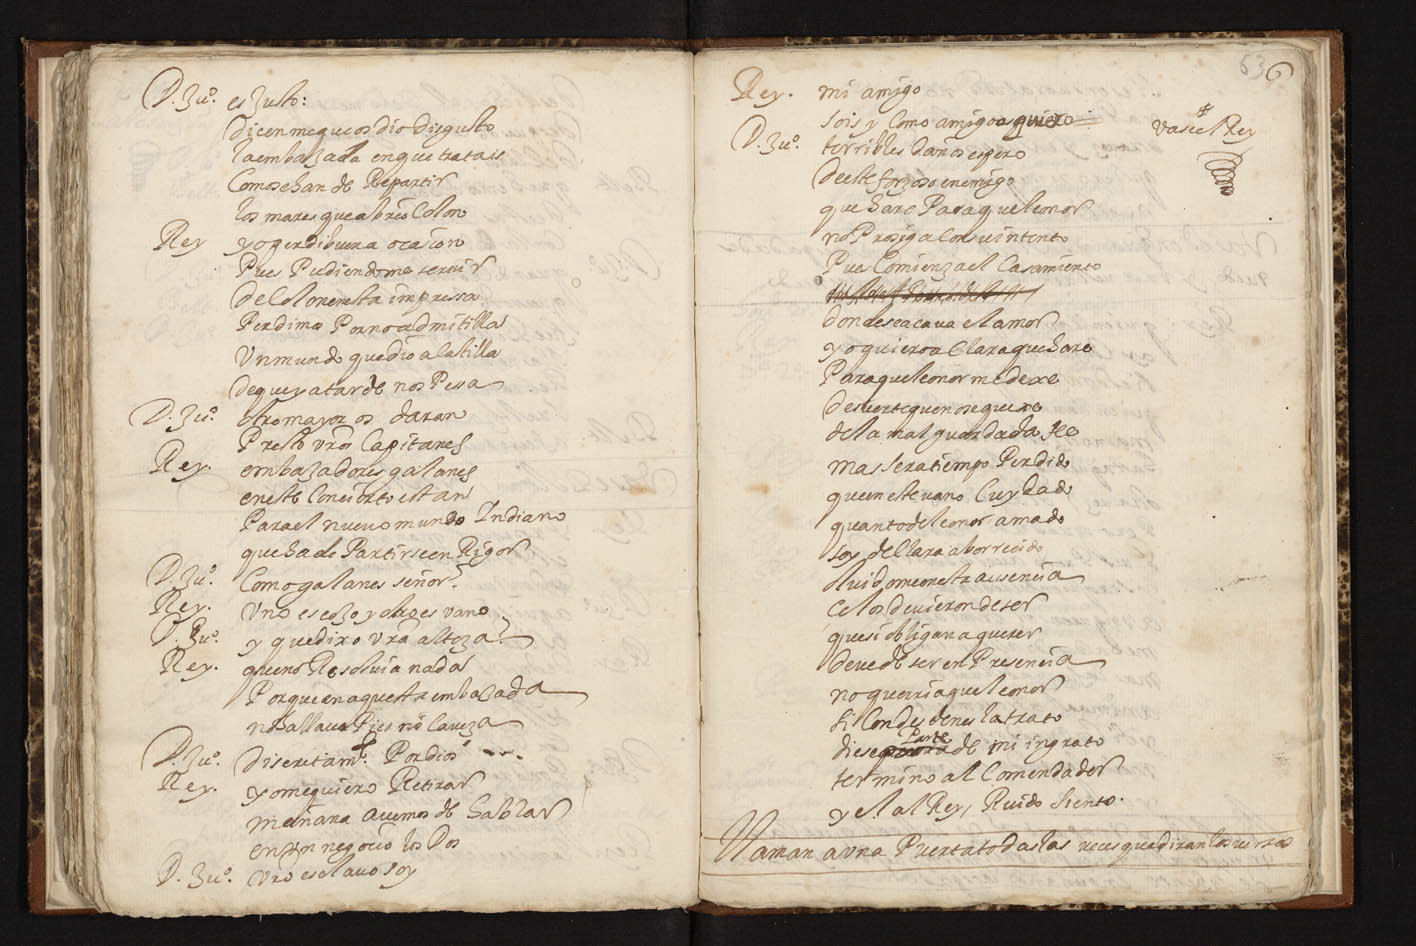 D. Ju.º es Justo:
dicenme que os dio disgusto
la embajada en que tratais
Como se han de Repartir
los mares que abrio Colon
Rey yo perdi buena ocasion
Pues Pudiendome servir
de Colon en esta impressa
Perdimos Por no admitilla
Un mundo que dio a Castilla
de que ya tarde nos Pesa
D. Ju.º otro mayor os daran
Presto vros Capitanes
Rey. embajadores galanes
en este Concierto estan
Para el nuevo mundo Indiano
que ha de Partirse en Rigor
D. Ju.º Como galanes señor?
Rey. Uno es cojo y otro es vano
D. Ju.º y que dixo vrā alteza?
Rey. que no Resolvia nada
Porque en aquesta embaxada
no hallava Pies ni Caveza
D. Ju.º discretamᵗᵉ Por dios
Rey. yo me quiero Retirar
mañana avemos de hablar
en Un negocio los Dos
D. Ju.º vro esclavo soy
63 6
Rey. mi amigo
sois y Como amigo os quiero vase el Rey
D. Ju.º terribles daños espero
de este forzoso enemigo
que hare Para que leonor
no Prosiga Con su intento
Pues Comienza el Casamiento
donde se acava el amor
yo quiero a Clara que hare
Para que leonor me dexe
de suerte que no se quexe
de la mal guardada fee
mas sera tiempo Perdido
que en este vano Cuydado
quanto de leonor amado
soy de Clara aborrecido
oluidome en esta ausencia
Celos devieron de ser
que si obligan a querer
deve de ser en Presencia
no querria que leonor
si Con desdenes la trato
diese Parte de mi ingrato
termino al Comendador
y el al Rey, Ruido siento.
Llaman a una Puerta todas las veces que diran los versos